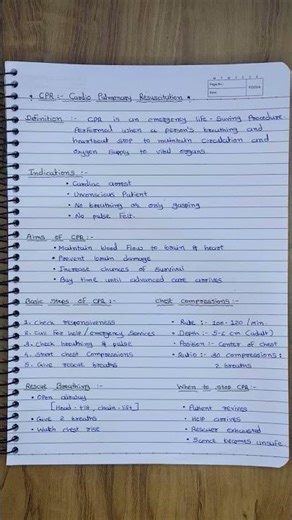 * CPR :- Cardio Pulmonary Resuscitation *
Definition :- CPR is an emergency life-saving procedure
performed when a person's breathing and
heartbeat stop to maintain circulation and
oxygen supply to vital organs
Indications :-
• Cardiac arrest
• Unconscious Patient
• No breathing or only gasping
• No pulse Felt.
Aims of CPR :-
• Maintain blood flow to brain & heart
• Prevent brain damage
• Increase chances of survival
• Buy time until advanced care arrives
Basic Steps of CPR :-
1. Check responsiveness
2. Call for help / emergency services
3. Check breathing & pulse
4. Start chest compressions
5. Give rescue breaths
Chest compressions :-
• Rate :- 100-120 / min
• Depth :- 5-6 cm (adult)
• Position :- Center of chest
• Ratio :- 30 compressions :
2 breaths
Rescue Breathing :-
• Open airway
[Head - tilt, chain - lift]
• Give 2 breaths
• Watch chest rise
When to stop CPR :-
• Patient revives
• Help arrives
• Rescuer exhausted
• Scence becomes unsafe